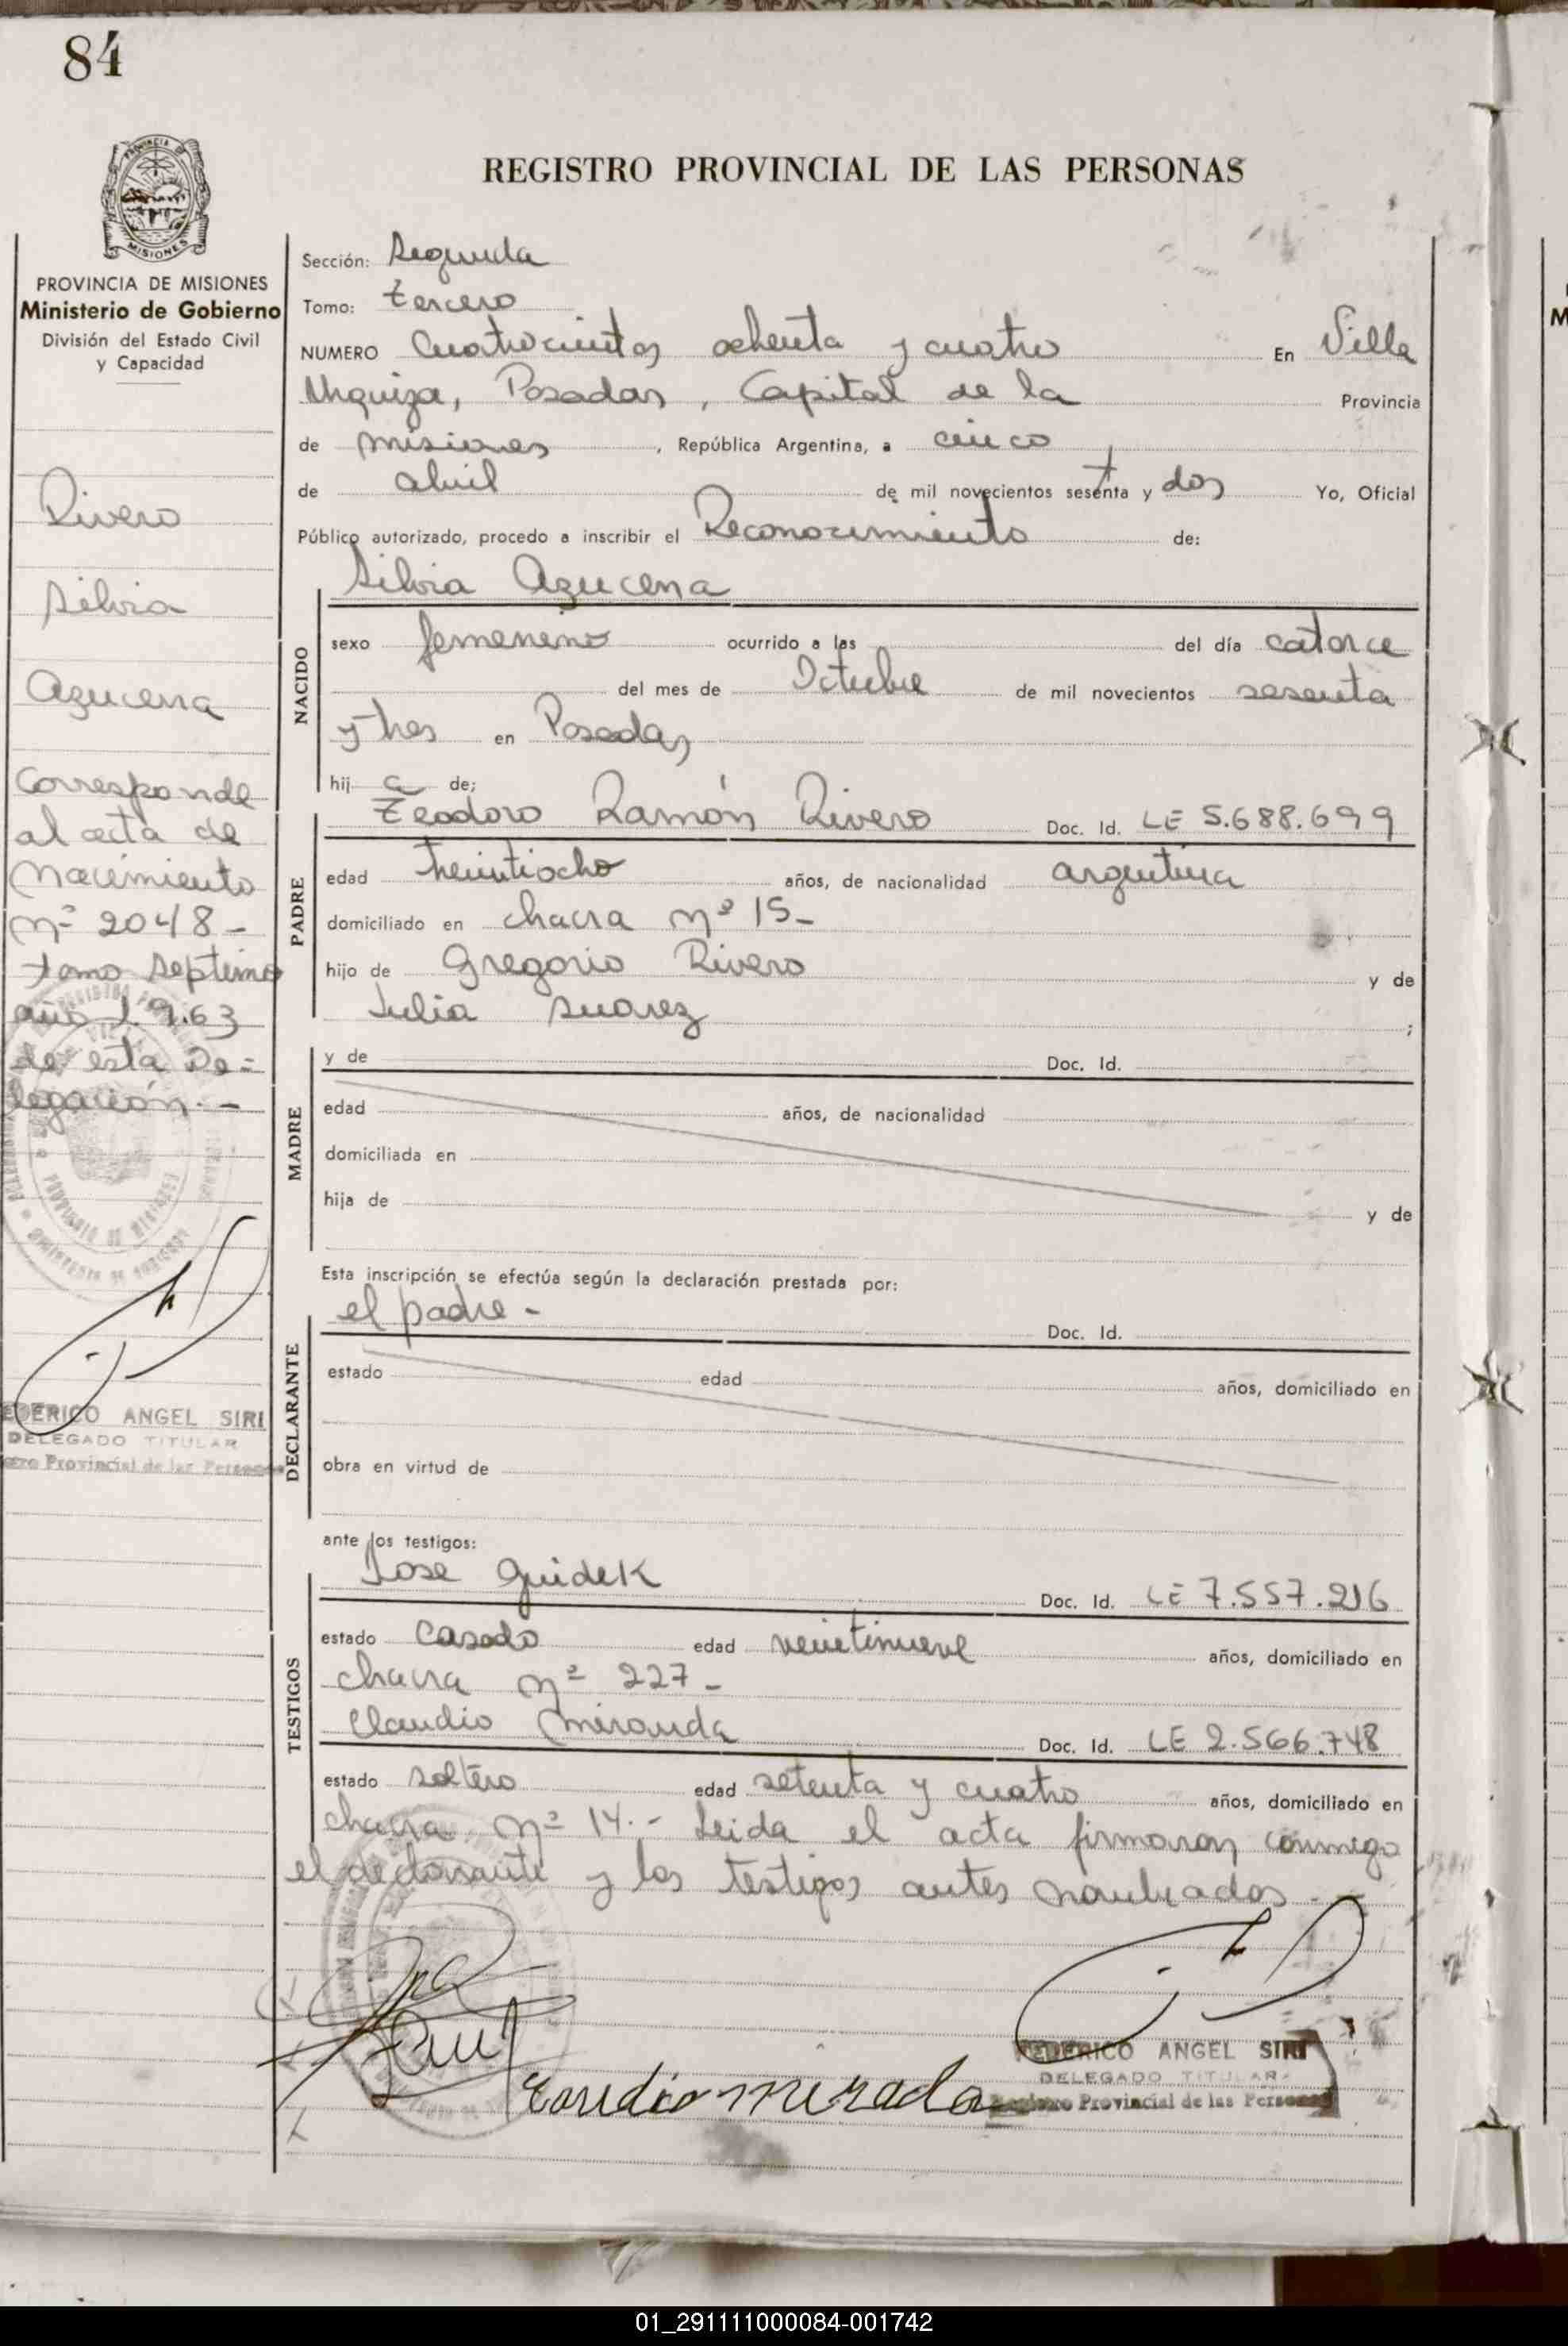 84
PROVINCIA DE MISIONES
MISIONES
PROVINCIA DE MISIONES
Ministerio de Gobierno
División del Estado Civil
y Capacidad
Rivero
Silvia
Azucena
Corresponde
al acta de
nacimiento
nº 2048-
tomo septimo
año 1.963
de esta De=
legación.-
FEDERICO ANGEL SIRI
DELEGADO TITULAR
Registro Provincial de las Personas
REGISTRO PROVINCIAL DE LAS PERSONAS
Sección: Segunda
Tomo: tercero
NUMERO Cuatrocientos ochenta y cuatro En Villa
Urquiza, Posadas, Capital de la Provincia
de misiones, República Argentina, a cinco
de abril de mil novecientos sesenta y dos Yo, Oficial
Público autorizado, procedo a inscribir el Reconocimiento de:
Silvia Azucena
NACIDO
sexo femenino ocurrido a las del día catorce
del mes de Octubre de mil novecientos sesenta
y tres en Posadas
hij a de;
PADRE
Teodoro Ramón Rivero Doc. Id. LE 5.688.699
edad treintiocho años, de nacionalidad argentina
domiciliado en chacra nº 15-
hijo de Gregorio Rivero y de
Julia Suarez ;
MADRE
y de Doc. Id.
edad años, de nacionalidad
domiciliada en
hija de y de
Esta inscripción se efectúa según la declaración prestada por:
el padre - Doc. Id.
DECLARANTE
estado edad años, domiciliado en
obra en virtud de
ante los testigos:
TESTIGOS
Jose Guidek Doc. Id. LE 7.557.216
estado Casado edad veintinueve años, domiciliado en
chacra nº 227-
Claudio Miranda Doc. Id. LE 2.566.748
estado soltero edad setenta y cuatro años, domiciliado en
chacra nº 14.- Leida el acta firmaron conmigo
el declarante y los testigos antes nombrados.-
FEDERICO ANGEL SIRI
DELEGADO TITULAR
Registro Provincial de las Personas
01_291111000084-001742